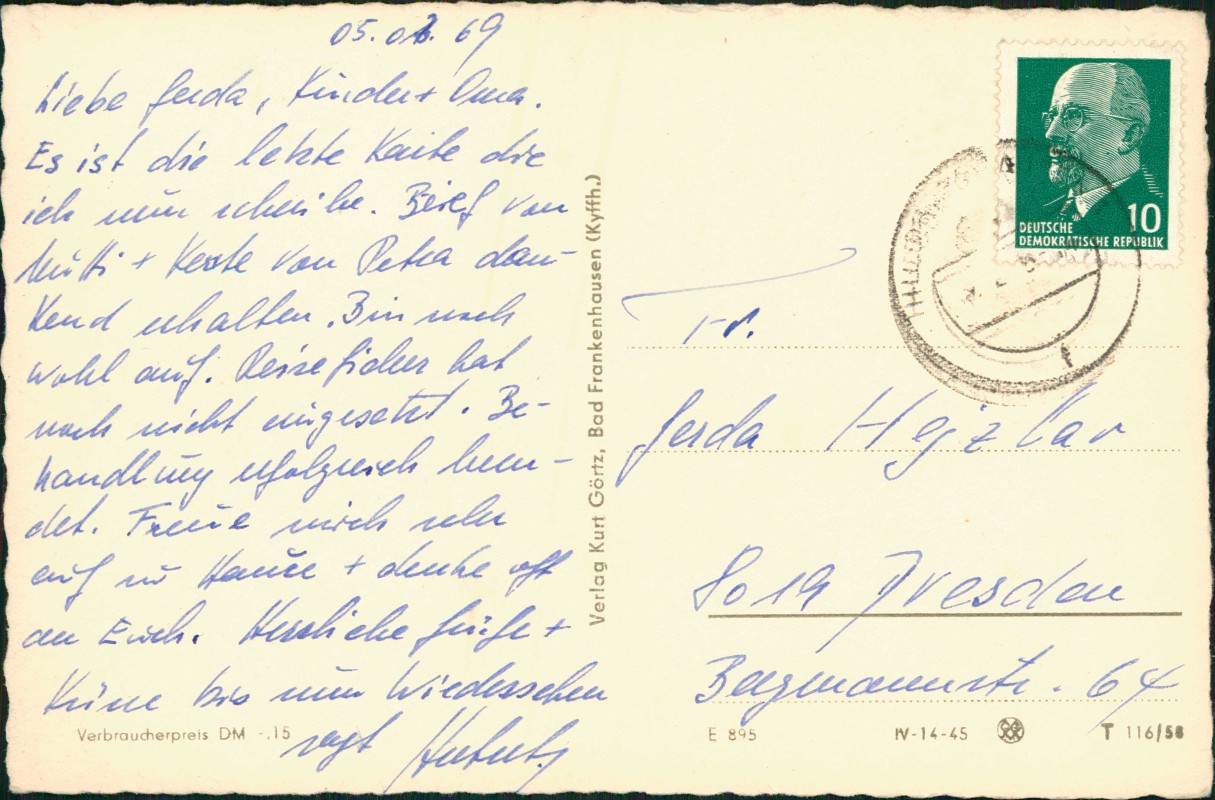 05.03.69
Liebe Gerda, Kinder + Oma.
Es ist die letzte Karte die
ich nun schreibe. Brief von
Mutti + Karte von Petra dan-
kend erhalten. Bin noch
wohl auf. Reisefieber hat
noch nicht eingesetzt. Be-
handlung erfolgreich been-
det. Freue mich sehr
auf zu Hause + denke oft
an Euch. Herzliche Grüße +
Küsse bis zum Wiedersehen
sagt Hubert.
Verbraucherpreis DM -.15
Verlag Kurt Görtz, Bad Frankenhausen (Kyffh.)
10
DEUTSCHE
DEMOKRATISCHE REPUBLIK
Fr.
Gerda Hejzlar
8019 Dresden
Bergmannstr. 64
E 895
IV-14-45
T 116/58